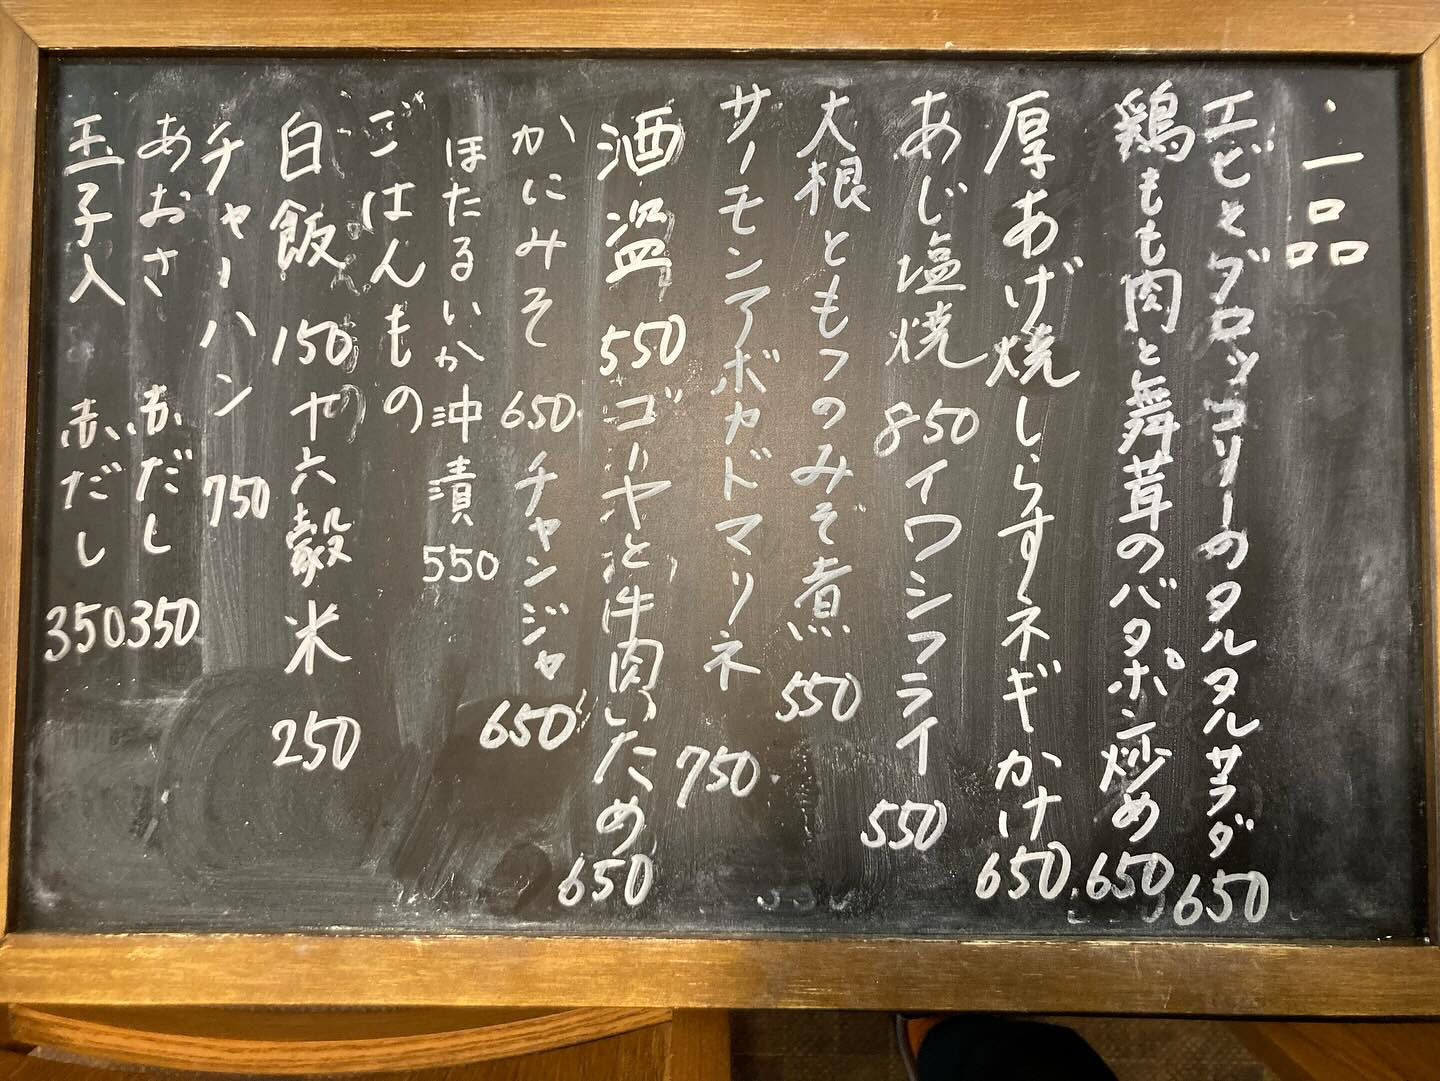 ・一品
エビとブロッコリーのタルタルサラダ 650
鶏もも肉と舞茸のバタポン炒め 650
厚あげ焼しらすネギかけ 650
あじ塩焼 850 イワシフライ 550
大根ともつのみぞ煮 550
サーモンアボカドマリネ 750
酒盗 550 ゴーヤと牛肉いため 650
かにみそ 650 チャンジャ 650
ほたるいか沖漬 550
ごはんもの
白飯 150 十六穀米 250
チャーハン 750
あおさ 赤だし 350
玉子入 赤だし 350